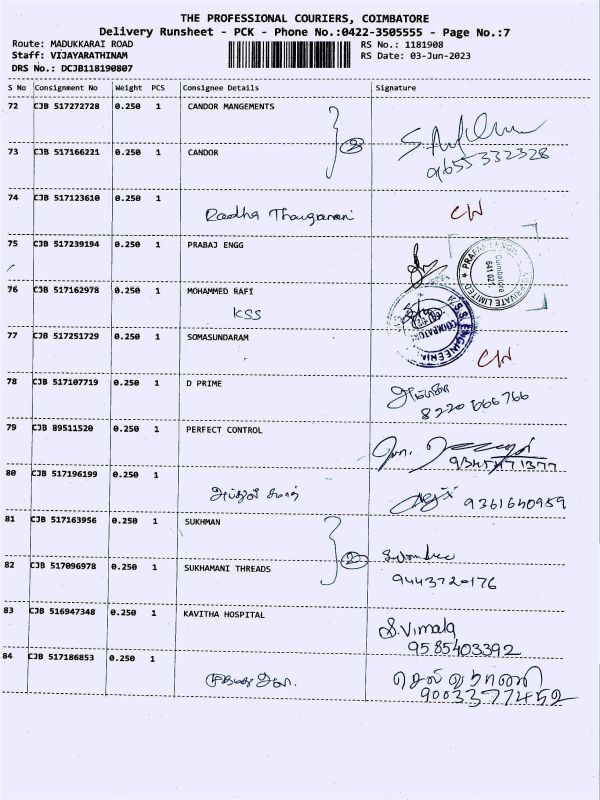 THE PROFESSIONAL COURIERS, COIMBATORE
Delivery Runsheet - PCK - Phone No.:0422-3505555 - Page No.:7
Route: MADUKKARAI ROAD RS No.: 1181908
Staff: VIJAYARATHINAM RS Date: 03-Jun-2023
DRS No.: DCJB118190807
S No Consignment No Weight PCS Consignee Details Signature
72 CJB 517272728 0.250 1 CANDOR MANGEMENTS
2
73 CJB 517166221 0.250 1 CANDOR
9655332328
74 CJB 517123610 0.250 1
Radha Thangamani CW
75 CJB 517239194 0.250 1 PRABAJ ENGG
76 CJB 517162978 0.250 1 MOHAMMED RAFI
KSS
77 CJB 517251729 0.250 1 SOMASUNDARAM
CW
78 CJB 517107719 0.250 1 D PRIME
8220666766
79 CJB 89511520 0.250 1 PERFECT CONTROL
9345471377
80 CJB 517196199 0.250 1
9361640959
81 CJB 517163956 0.250 1 SUKHMAN
2
82 CJB 517096978 0.250 1 SUKHAMANI THREADS
9443720176
83 CJB 516947348 0.250 1 KAVITHA HOSPITAL
S.Vimala
9585403392
84 CJB 517186853 0.250 1
செல்வராணி
9003377452